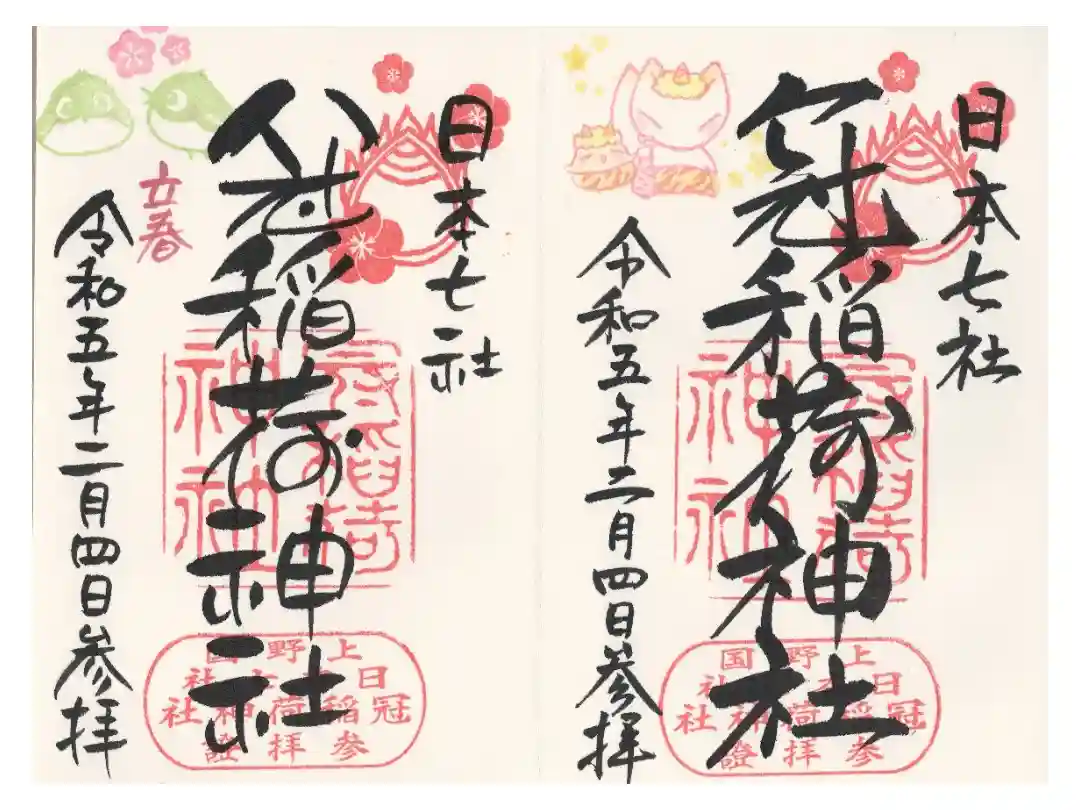 日本七社
冠稲荷神社
立春
令和五年二月四日参拝
冠稲荷神社
上野国
日本七社
冠稲荷神社
参拝證
日本七社
冠稲荷神社
令和五年二月四日参拝
冠稲荷神社
上野国
日本七社
冠稲荷神社
参拝證